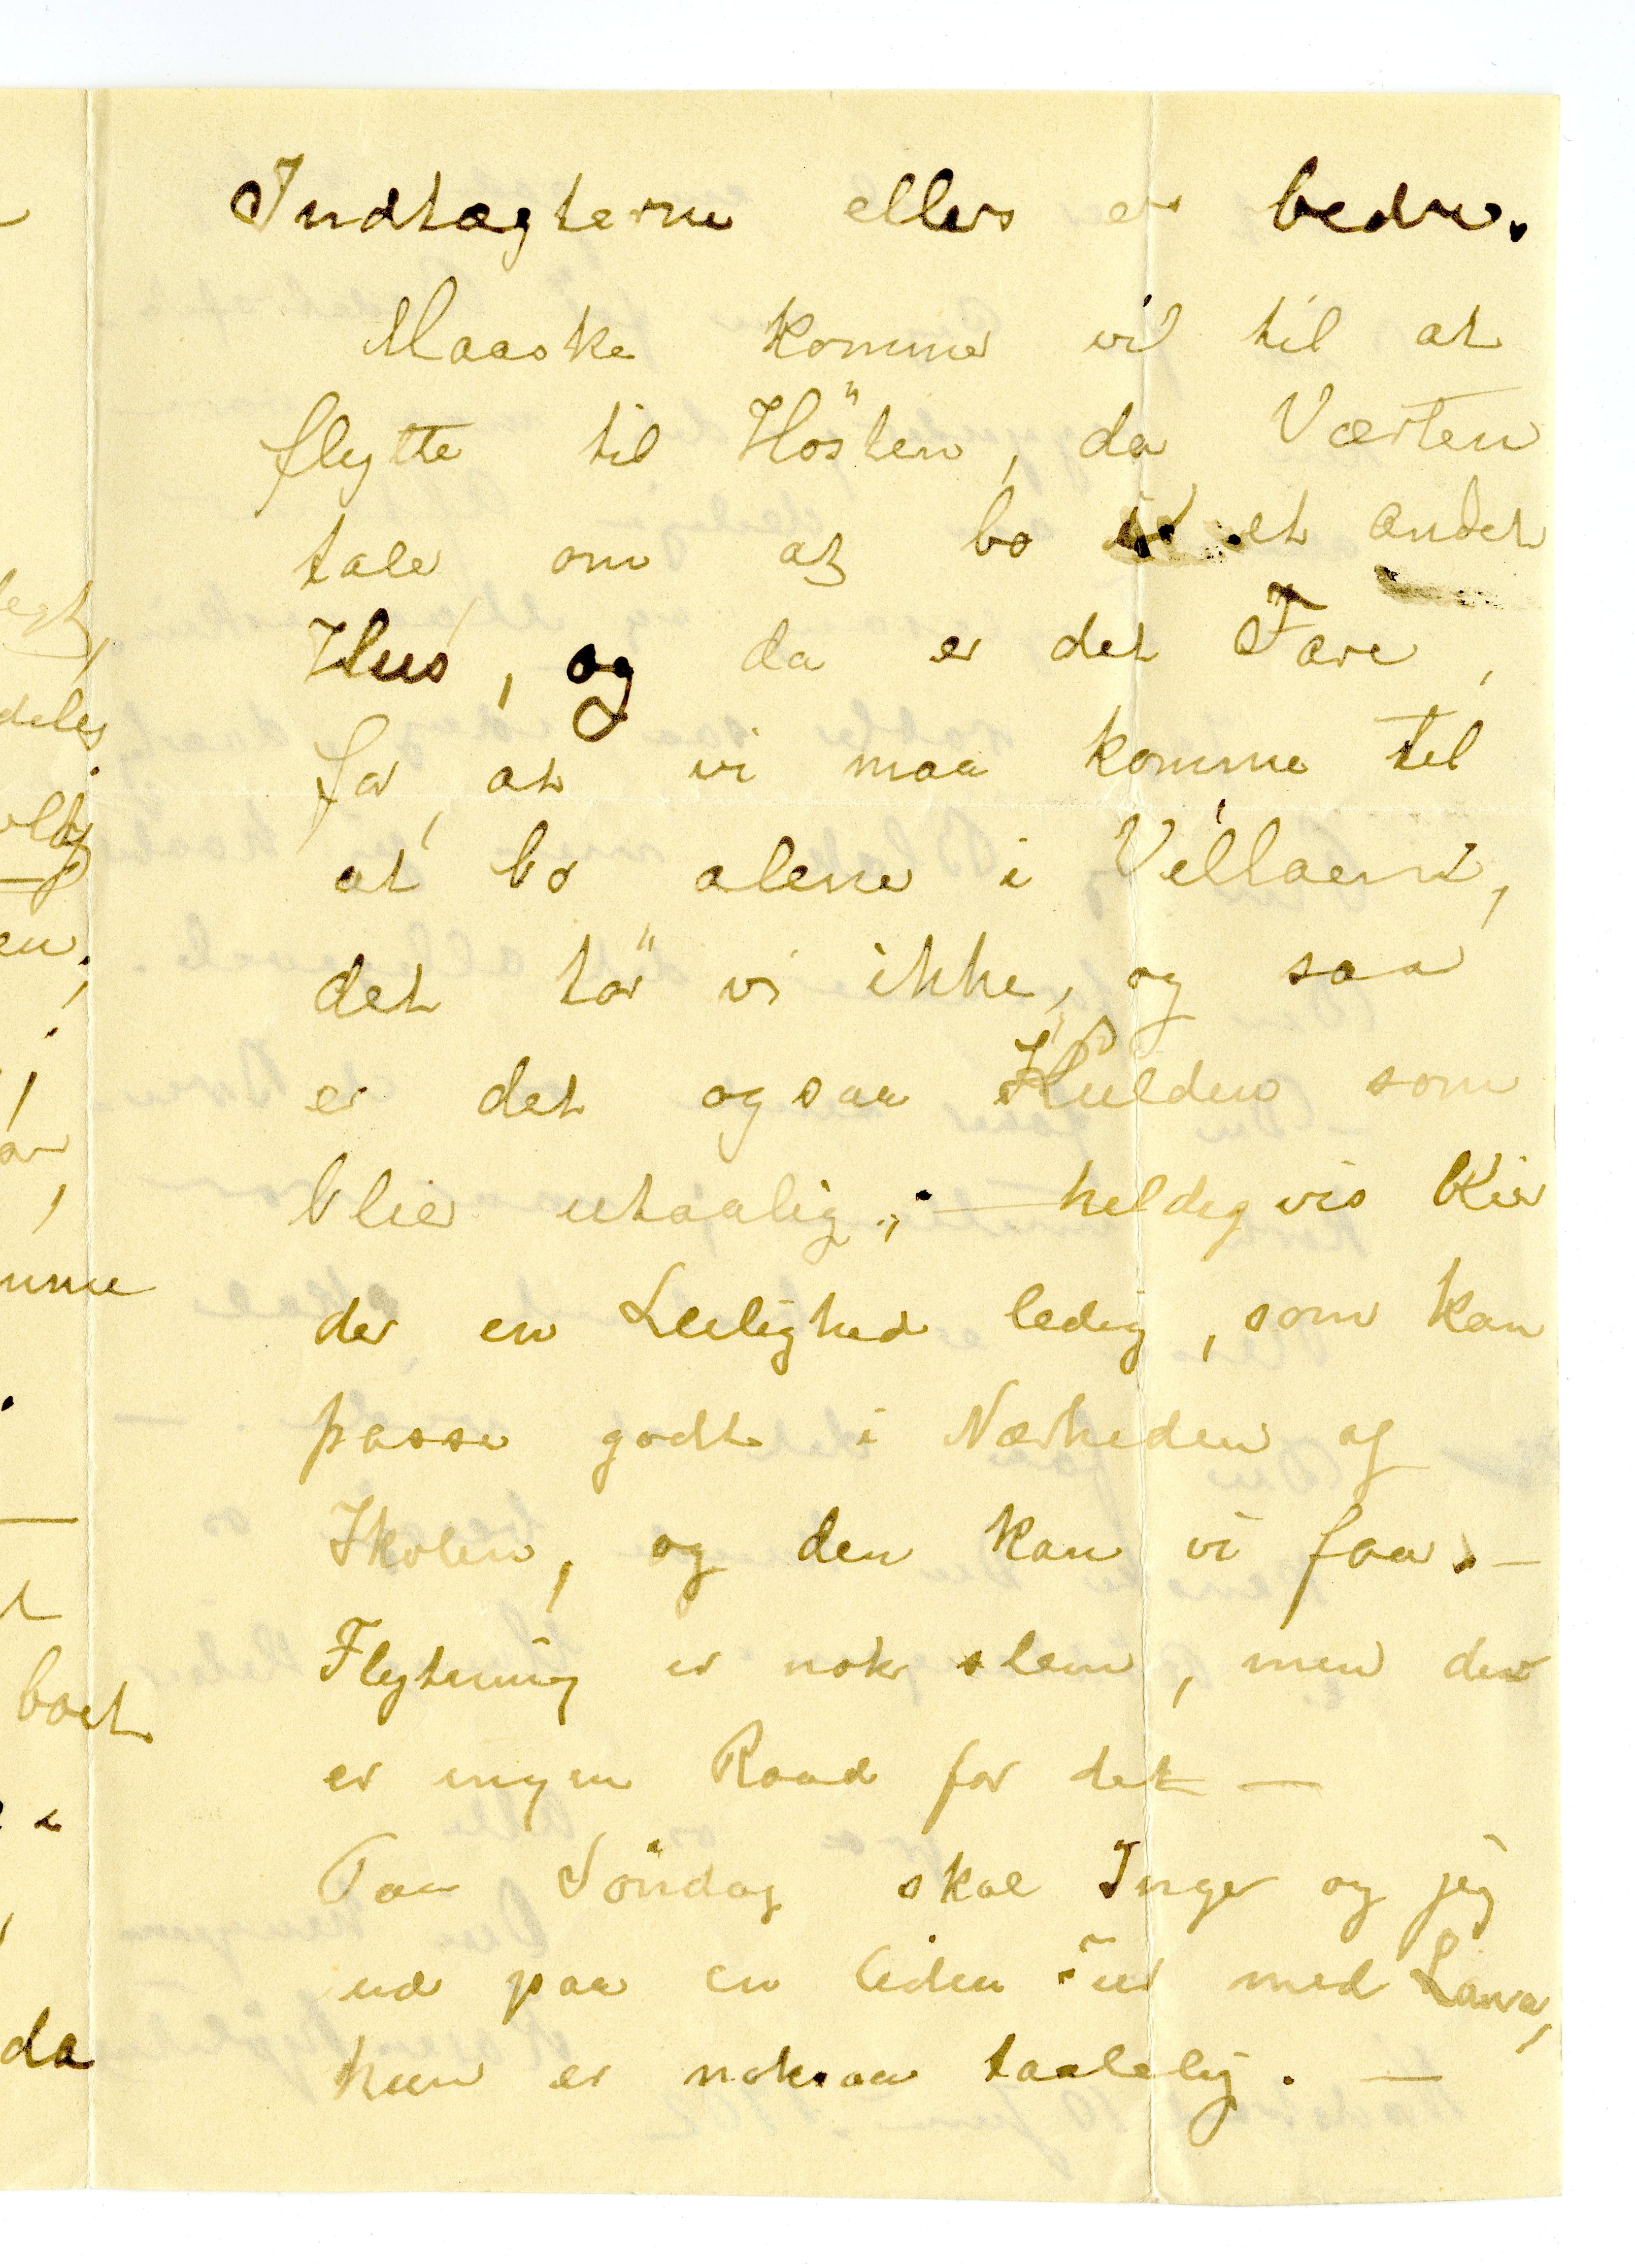 Indtægterne ellers er bedre.
Maaske kommer vi til at
flytte til Hösten, da Værten
taler om at bo i et andet
Hus, og da er det Fare,
for, at vi maa komme til
at bo alene i Villaen,
det tör vi ikke, og saa
er det ogsaa Kulden som
blier utaalig, - heldigvis blir
der en Leilighed ledig, som kan
passe godt i Nærheden af
Skolen, og den kan vi faa. -
Flytning er nok slem, men der
er ingen Raad for det -
Paa Söndag skal Inger og jeg
ud paa en liden Tur med Lava,
hun er noksaa taalelig. -
da
boet